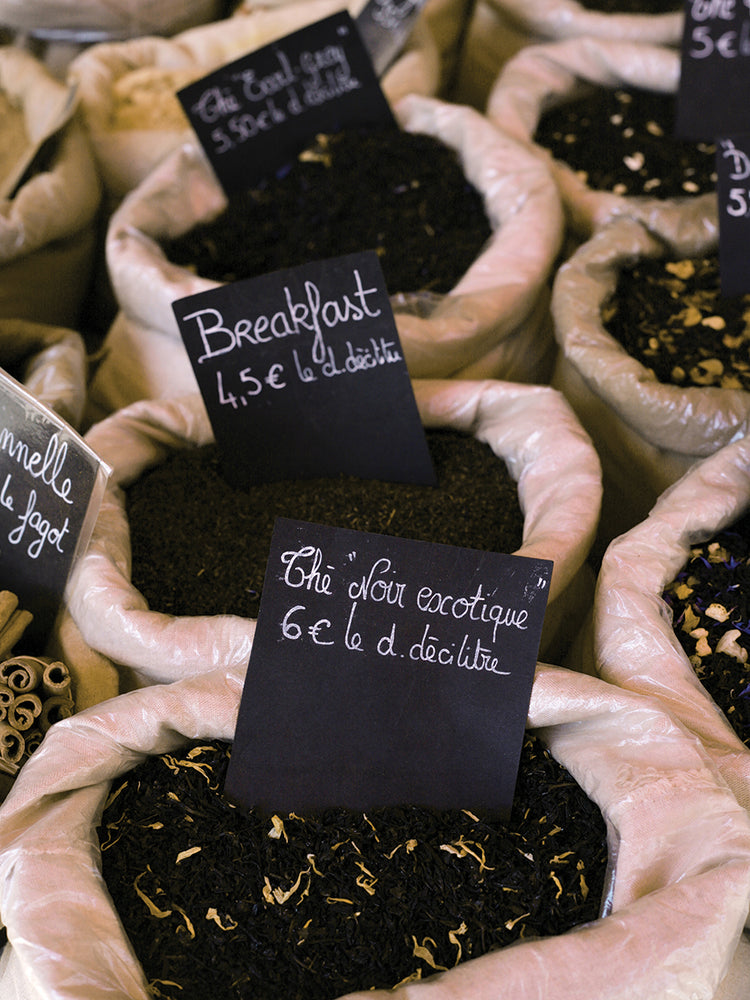 Thé "Earl-grey
5,50€ le d. décilitre
Thé
5€
5
Breakfast
4,5€ le d. décilitre
nnelle
le fagot
Thé "Noir excotique"
6€ le d. décilitre